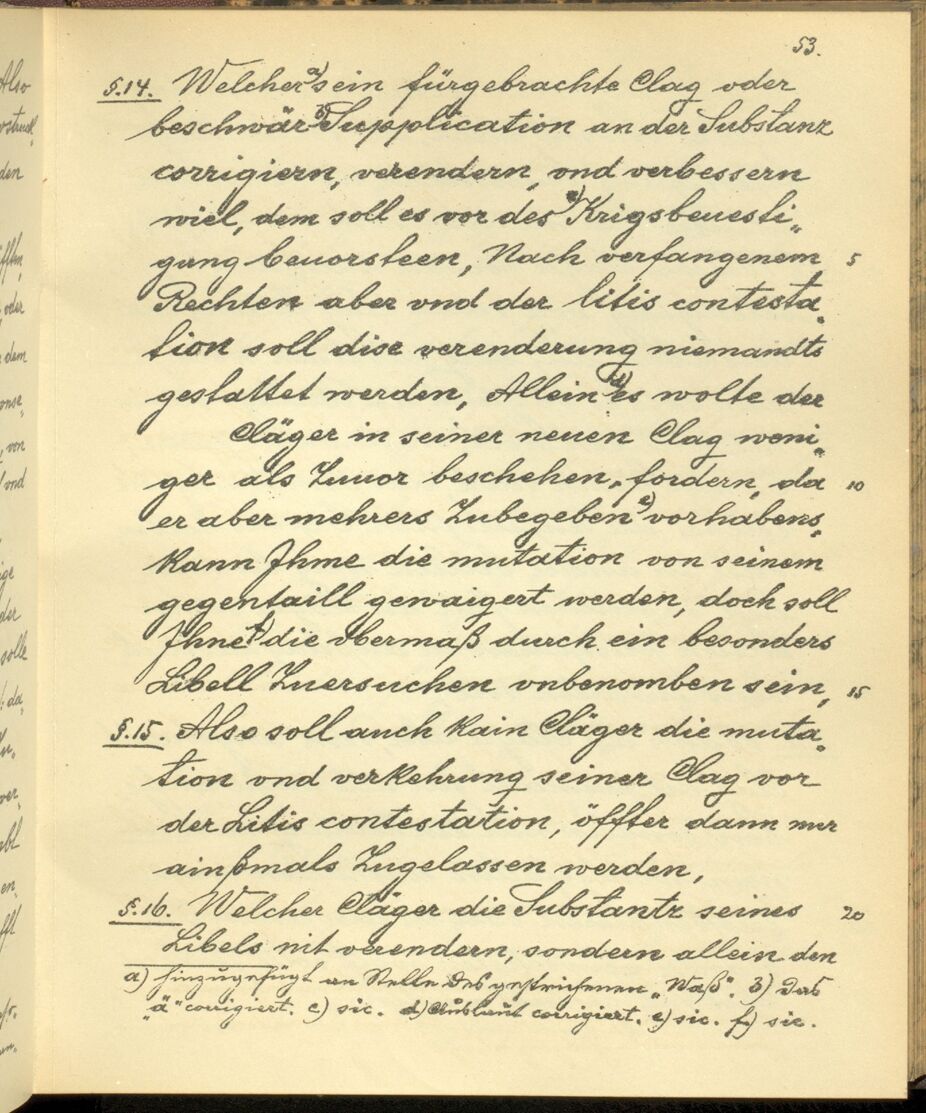 53.
§.14. Welcher a) sein fürgebrachte Clag oder
beschwär b) Supplication an der Substanz
corrigiern, verendern, vnd verbessern
wiel, dem soll es vor des c) Krigsbeuesti„
gung beuorsteen, Nach verfangenem 5
Rechten aber vnd der litis contesta„
tion soll dise verenderung niemandts
gestattet werden, Allein d) es wolte der
Cläger in seiner neuen Clag weni„
ger als Zuuor beschehen, fordern, da 10
er aber mehrers Zubegeben e) vorhabens,
kann Jhme die mutation von seinem
gegentaill gewaigert werden, doch soll
Jhne f) die vbermaß durch ein besonders
Libell Zuersuchen vnbenomben sein, 15
§.15. Also soll auch kain Cläger die muta„
tion vnd verkehrung seiner Clag vor
der Litis contestation, öffter dann nur
ainßmals Zugelassen werden,
§.16. Welcher Cläger die Substantz seines 20
Libels nit verendern, sondern allein den
a) hinzugefügt an Stelle des gestrichenen „Waß“. b) das
„ä“ corrigiert. c) sic. d) corrigiert. e) sic. f) sic.